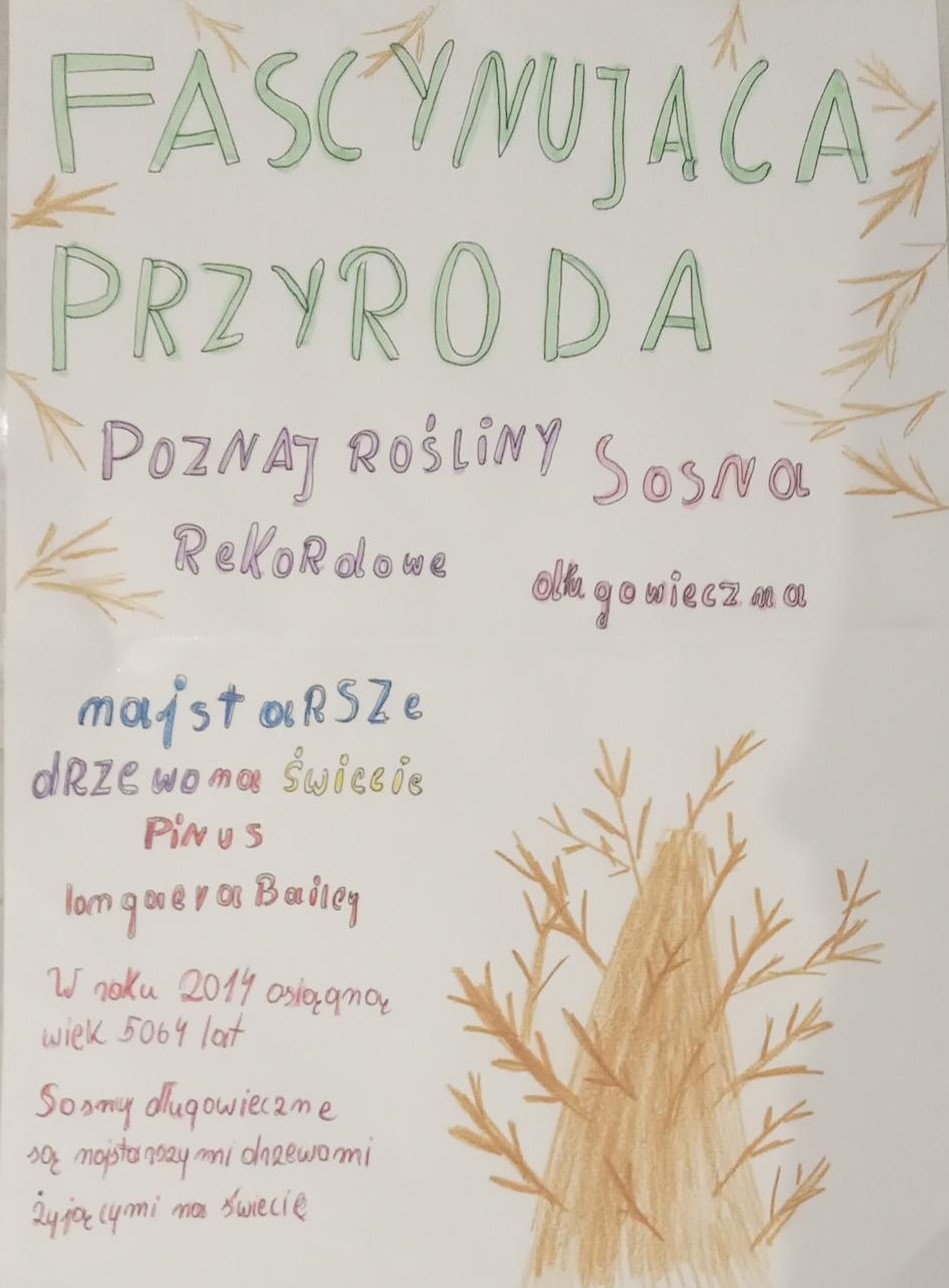 FASCYNUJĄCA
PRZYRODA
POZNAJ ROŚLINY
ReKoRdowe
Sosna
długowieczna
najstaRSZe
dRZewo na świecie
PiNUS
longaeva Bailey
W roku 2014 osiągną
wiek 5064 lat
Sosny długowieczne
są najstarszymi drzewami
żyjącymi na świecie